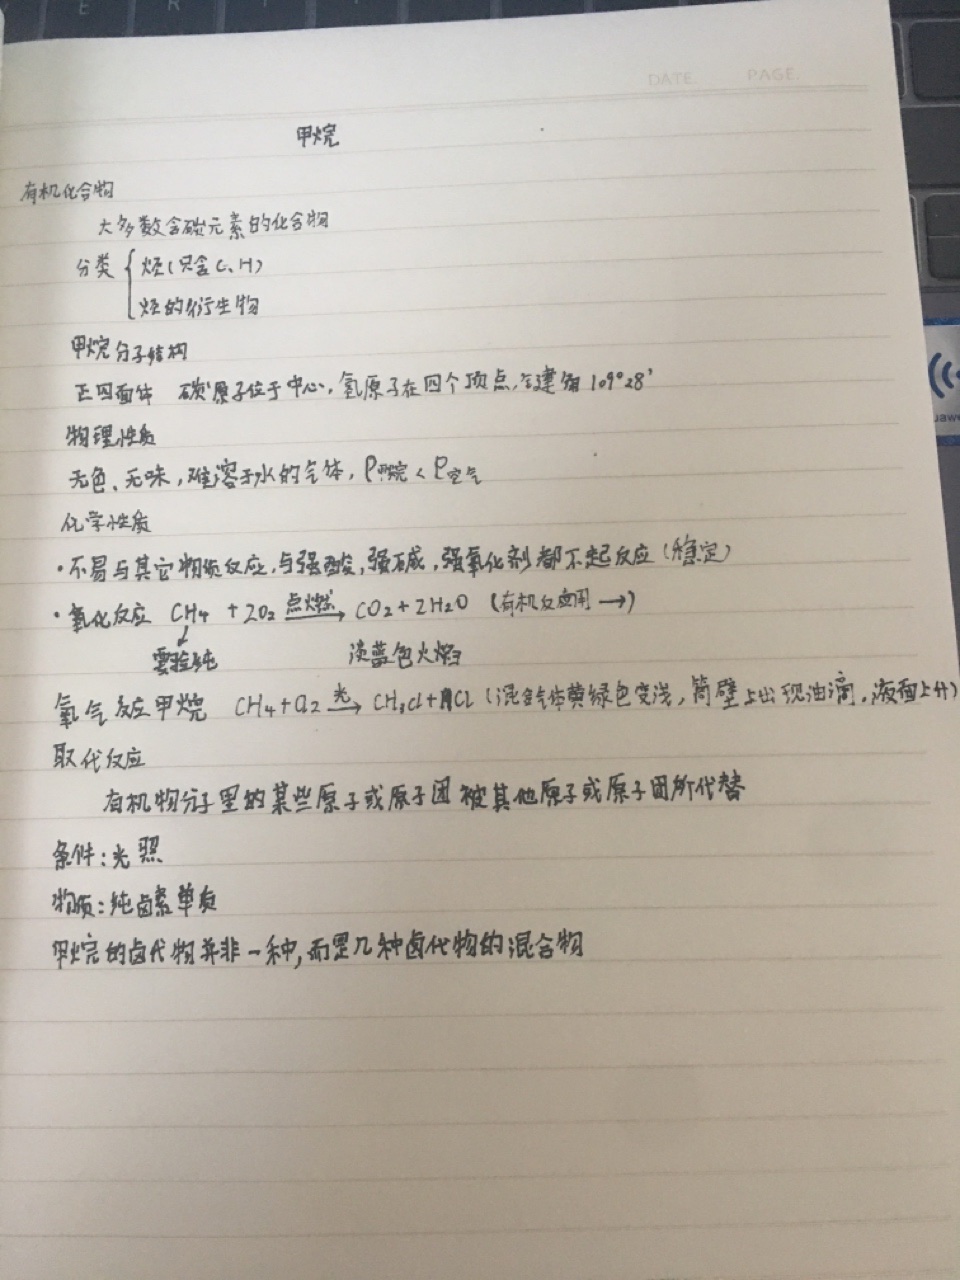 E R
DATE. PAGE.
甲烷
有机化合物
大多数含碳元素的化合物
分类 { 烃(只含C、H)
烃的衍生物
甲烷分子结构
正四面体 碳原子位于中心,氢原子在四个顶点,键角109°28'
物理性质
无色、无味,难溶于水的气体,ρ甲烷<ρ空气
化学性质
·不易与其它物质反应,与强酸,强碱,强氧化剂都不起反应(稳定)
·氧化反应 CH4 + 2O2 点燃→ CO2+2H2O (有机反应用→)
↓
要验纯 淡蓝色火焰
氯气反应甲烷 CH4+Cl2 光→ CH3Cl+HCl (混合气体黄绿色变浅,筒壁上出现油滴,液面上升)
取代反应
有机物分子里的某些原子或原子团被其他原子或原子团所代替
条件:光照
物质:纯卤素单质
甲烷的卤代物并非一种,而是几种卤代物的混合物